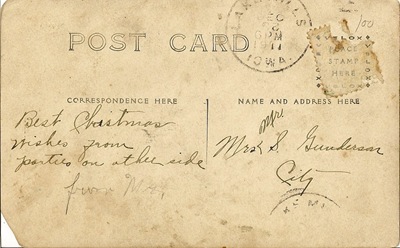 POST CARD
DEC
6PM
IOWA.
/00
VELOX
PLACE
STAMP
HERE
CORRESPONDENCE HERE
NAME AND ADDRESS HERE
Best Christmas
wishes from
parties on other side
from
Mrs
Mrs S. Gunderson
City